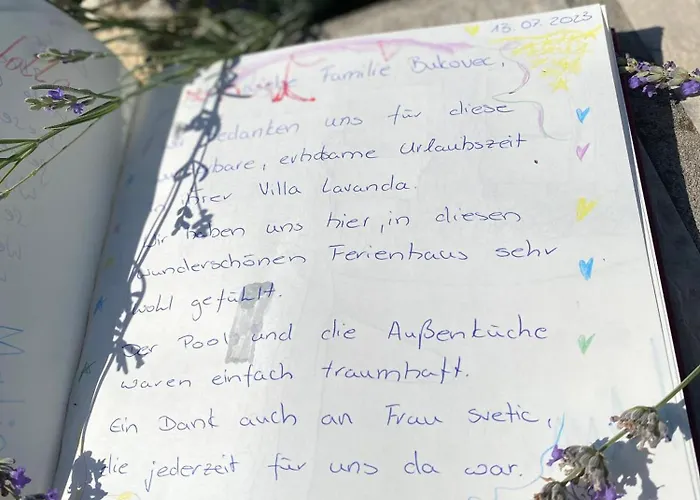 13.07.2023
Familie Bukovec,
bedanken uns für diese
erholsame Urlaubszeit
in ihrer Villa Lavanda.
Wir haben uns hier, in diesen
wunderschönen Ferienhaus sehr
wohl gefühlt.
Der Pool und die Außenküche
waren einfach traumhaft.
Ein Dank auch an Frau Svetic,
die jederzeit für uns da war.